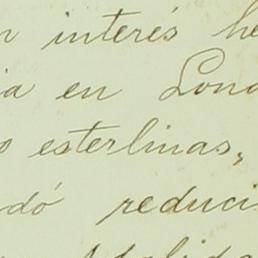 n interés he
ia en Lond
o esterlinas,
dó reduci